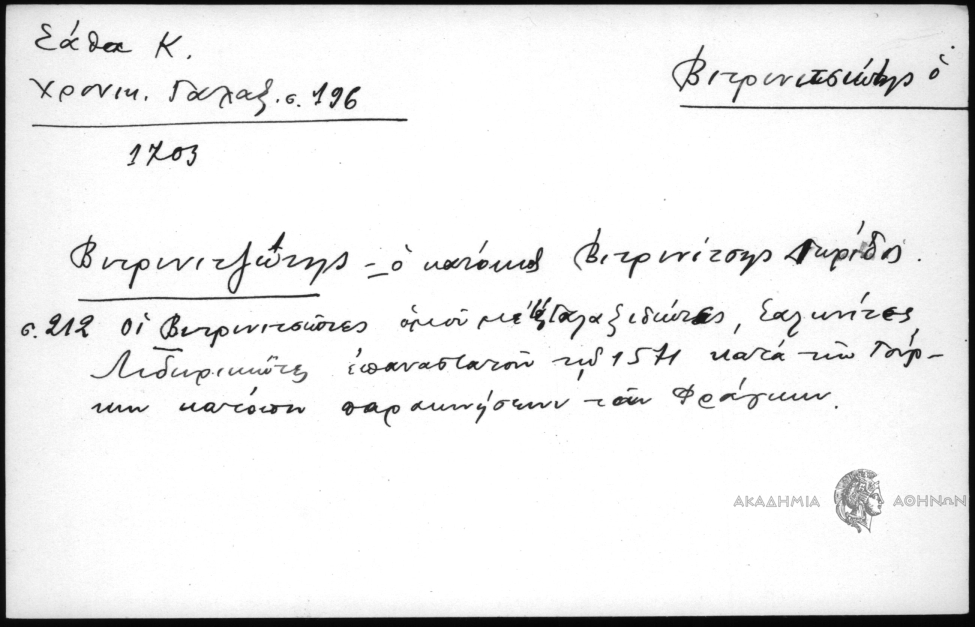 Σάθα Κ.
Χρονικ. Γαλαξ. σ. 196
Βιτρινιτσιώτης ὁ
1703
Βιτρινιτζιώτης = ὁ κάτοικος Βιτρινίτσης Δωρίδος.
σ. 212 οἱ Βιτρινιτσιῶτες ὁμοῦ μὲ τοὺς Γαλαξιδιῶτες, Σαλωνίτες
Λιδωρικιῶτες ἐπαναστατοῦν τῷ 1571 κατὰ τῶν Τούρ-
κων κατόπιν παρακινήσεων τῶν Φράγκων.
ΑΚΑΔΗΜΙΑ ΑΘΗΝΩΝ